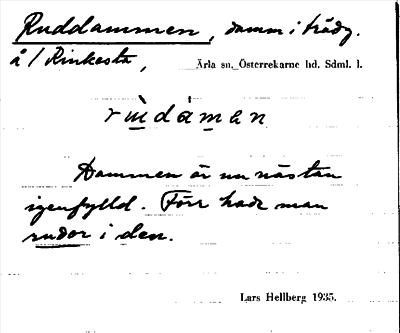 Ruddammen, damm i trädg.
å / Rinkesta, Ärla sn. Österrekarne hd. Sdml. l.
rùdámen
Dammen är nu nästan
igenfylld. Förr hade man
rudor i den.
Lars Hellberg 1935.